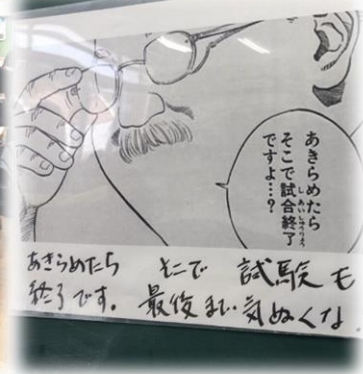 あきらめたら
そこで試合終了
ですよ…?
しあいしゅうりょう
あきらめたら そこで 試験も
終了です。 最後まで気ぬくな